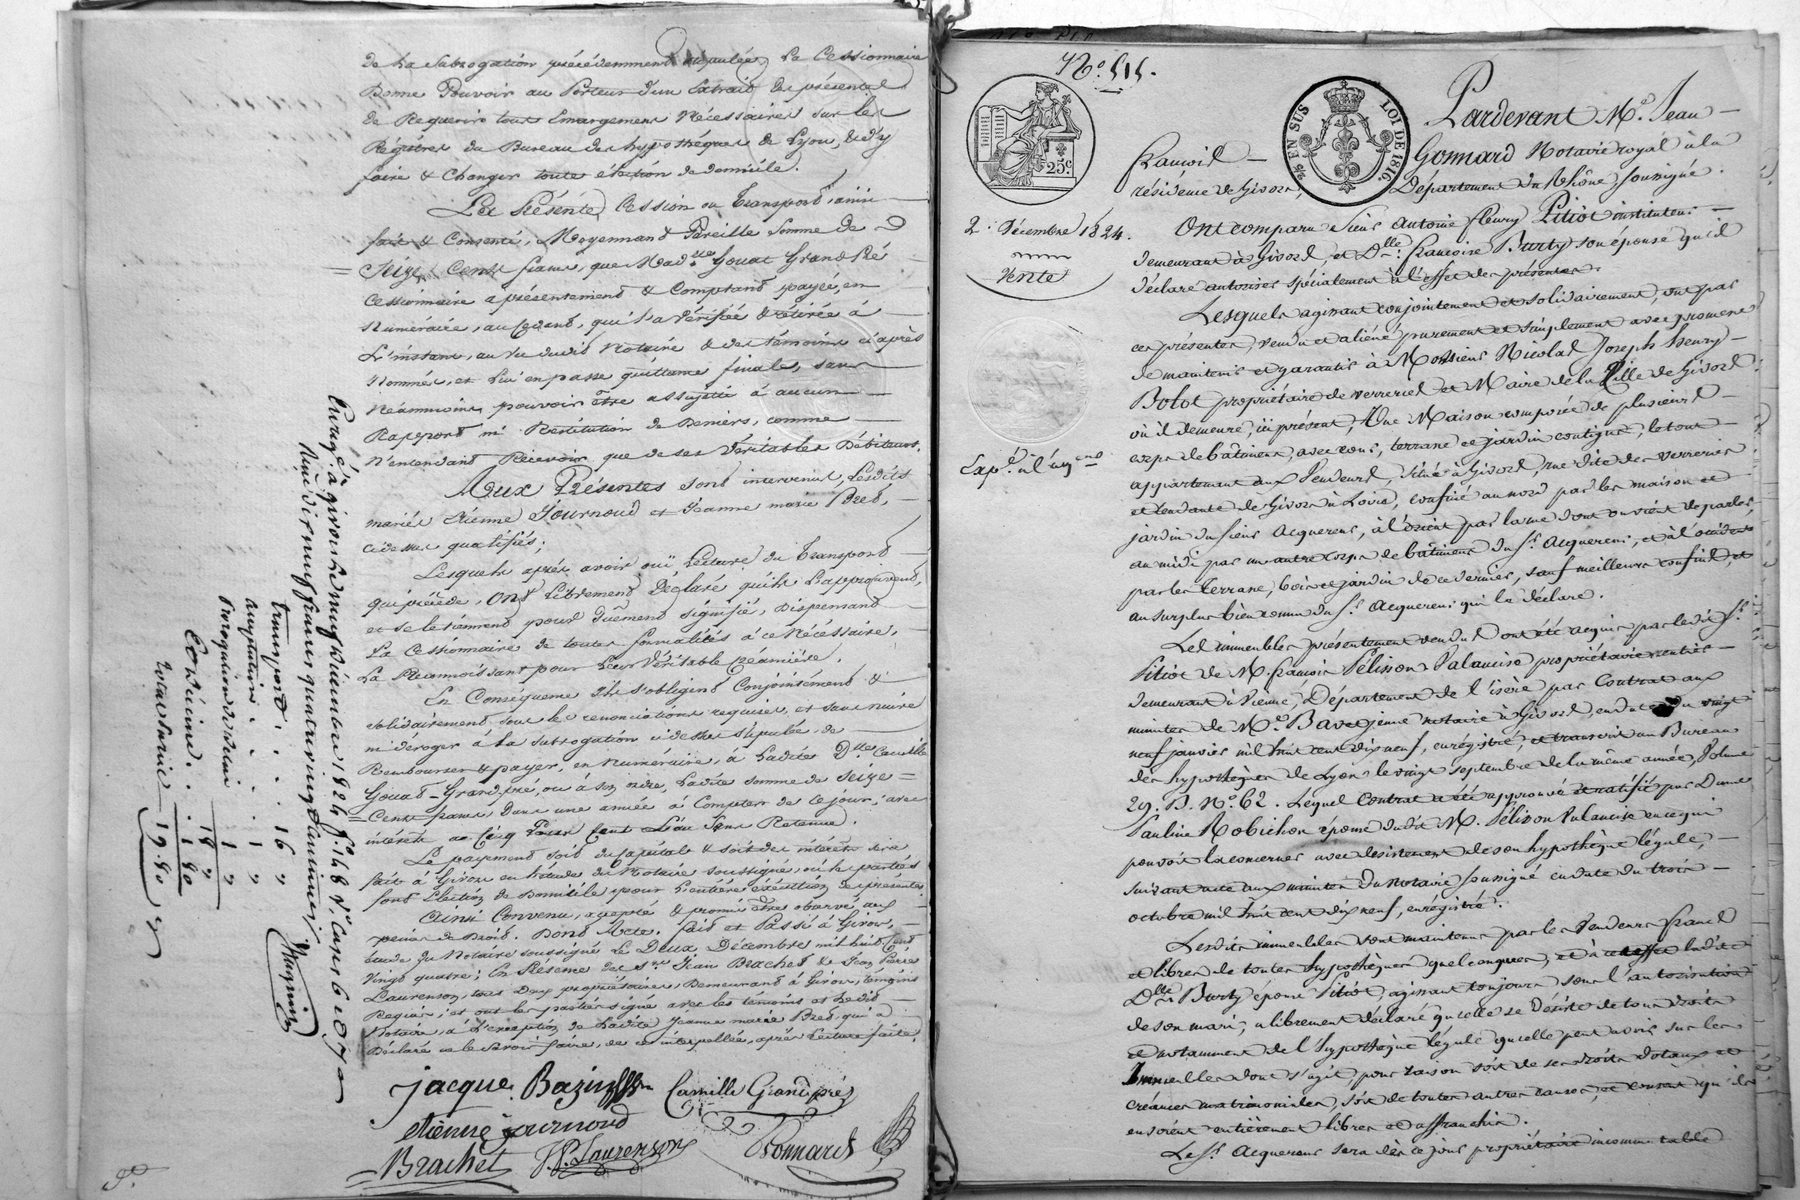 de la Subrogation précédemment stipulée, La Cessionnaire
Donne Pouvoir au Porteur d'un Extrait des présentes
de Requerir tous Emargemens Nécessaires sur les
Registres du Bureau des hypothéques de Lyon, & d'y
faire & Changer toute éléction de domicile.
La Présente Cession ou Transport, ainsi
fait & Consenti, Moyennant Pareille Somme de
Seize Cents francs, que Mad.lle Gouat Grand Pré
Cessionnaire a présentement & Comptant payée, en
Numéraire, au Cédant, qui l'a Vérifiée & retirée à
L'instant, au vu dudit Notaire & des témoins ci après
Nommés, et Lui en passe quittance finale, sans
Néanmoins pouvoir être assujetti à aucun
Rapport ni Restitution de Deniers, comme
N'entendant Recevoir que de ses Véritables Débiteurs.
Aux Présentes sont intervenus, Lesdits
mariés Etienne Journoud et Jeanne marie Bret,
cidessus qualifiés;
Lesquels après avoir ouï Lecture du Transport
qui précède, Ont Librement Déclaré qu'ils L'approuvent,
et se le tiennent pour Dûement signifié, Dispensant
La Cessionnaire de toutes formalités à ce Nécessaire,
La Reconnoissant pour Leur Véritable Créancière.
En Conséquence ils s'obligent Conjointement &
solidairement sous les renonciations requises, et sans nuire
ni déroger à La subrogation cidessus stipulée, de
Rembourser & payer, en Numéraire, à Ladite D.lle Camille
Gouat-Grandpré, ou à son ordre, Ladite somme de Seize
Cents francs Dans une année à Compter de Ce jour, avec
intérêt au Cinq Pour Cent L'an Sans Retenue.
Le payement soit du Capital & soit des intérêts sera
fait à Givors en L'étude du Notaire soussigné, où les parties
font Election de Domicile, pour L'entière éxécution des présentes.
Ainsi Convenu, accepté & promis être observé aux
peines de Droit. Dont Acte. fait et Passé à Givors,
Etude du Notaire soussigné Le Deux Décembre mil huit Cent
Vingt quatre; En Présence des S.rs Jean Brachet & Jean Pierre
Laurenson, tous Deux propriétaires, Demeurant à Givors, témoins
Requis; et ont les parties signé avec les témoins et Ledit
Notaire, à L'exception de Ladite Jeanne marie Bret, qui a
Déclaré ne le Savoir faire, de ce interpellée, après Lecture faite.
Jacque Bazin Camille Grandpré
etienne journoud
Brachet J.P. Laurenson Gonnard
Enregé à givors le neuf décembre 1824 f.° 48 v.° cases 6 et 7
Reçu dix neuf francs quatre vingt centimes
transport . . . . 16 "
acceptation . . . 1 "
18 "
Dixième . . . 1 80
Total Général 19.80
N.° 515.
25.c
25 EN SUS
LOI DE 1816.
2. Décembre 1824.
Vente
Pardevant M.e Jean
François Gonnard Notaire royal à la
résidence de Givors, Département du Rhône, soussigné.
Ont comparu Sieur Antoine fleury Pitiot instituteur
demeurant à Givors, et D.lle Françoise Burty son épouse qu'il
déclare autoriser spécialement à l'effet des présentes.
Lesquels agissant conjointement et solidairement, ont par
ces présentes, vendu et aliéné purement et simplement avec promesse
de maintenir et garantir à Monsieur Nicolas Joseph henry
Bolot propriétaire de verreries et Maire de la Ville de Givors
où il demeure, ici présent, Une Maison composée de plusieurs
corps de bâtimens, avec cour, terrasse et jardin contigus, le tout
appartenant aux Vendeurs, situé à Givors, rue dite des verreries
et tendante de Givors à Loire, confiné au nord par les maison et
jardin du sieur Acquereur, à l'orient par la rue dont on vient de parler,
au midi par un autre corps de bâtimens du S.r Acquereur, et à l'occident
par les terrasse, bois et jardin de ce dernier, sauf meilleurs confins, et
au surplus bien connu du S.r Acquereur qui le déclare.
Les immeubles présentement vendus ont été acquis par ledit S.r
Pitiot de M. françois Pélisson Valencise propriétaire rentier
demeurant à Vienne, Département de l'isère par Contrat aux
minutes de M.e Bavet jeune notaire à Givors, en date du vingt
neuf janvier mil huit cent dix neuf, enrégistré, et transcrit au Bureau
des hypothèques de Lyon le vingt septembre de la même année, Volume
29. B. N.° 62. Lequel Contrat a été approuvé et ratifié par Dame
Pauline Robichon épouse dudit M. Pélisson Valencise en ce qui
pouvoit la concerner avec desistement de son hypothèque légale,
suivant acte aux minutes du notaire soussigné en date du trois
octobre mil huit cent dix neuf, enrégistré.
Lesdits immeubles sont maintenus par les Vendeurs francs
et libres de toutes hypothèques quelconques, et à ce effet ladite
D.lle Burty épouse Pitiot, agissant toujours sous l'autorisation
de son mari, a librement déclaré qu'elle se désiste de tous droits
et notamment de l'hypothèque légale qu'elle peut avoir sur les
Immeubles dont s'agit, pour raison soit de ses droits dotaux et
créances matrimoniales, soit de toutes autres causes, et consent qu'ils
en soient entièrement libres et affranchis.
Le S.r Acquereur sera dès ce jour propriétaire incommutable